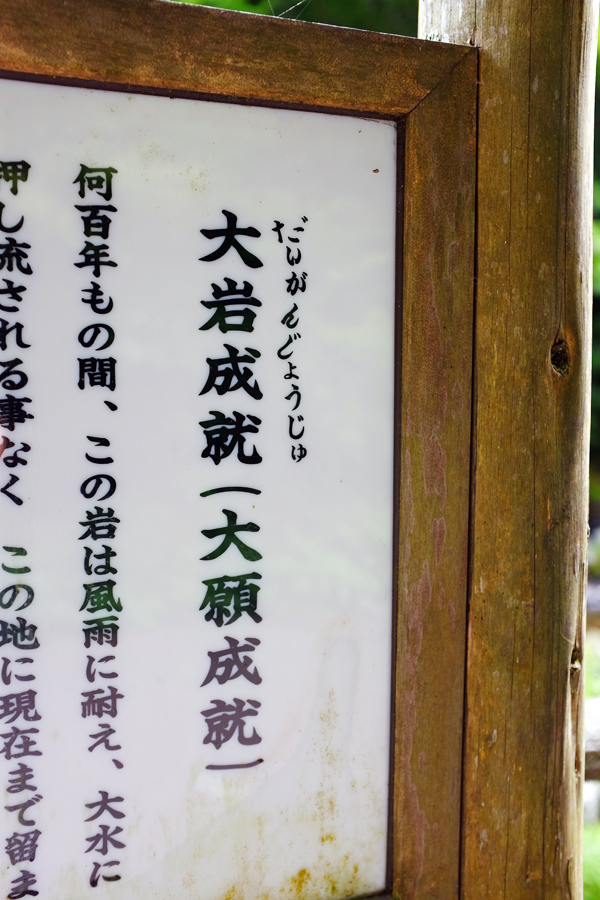 だいがんじょうじゅ
大岩成就（大願成就）
何百年もの間、この岩は風雨に耐え、大水に
押し流される事なく　この地に現在まで留ま